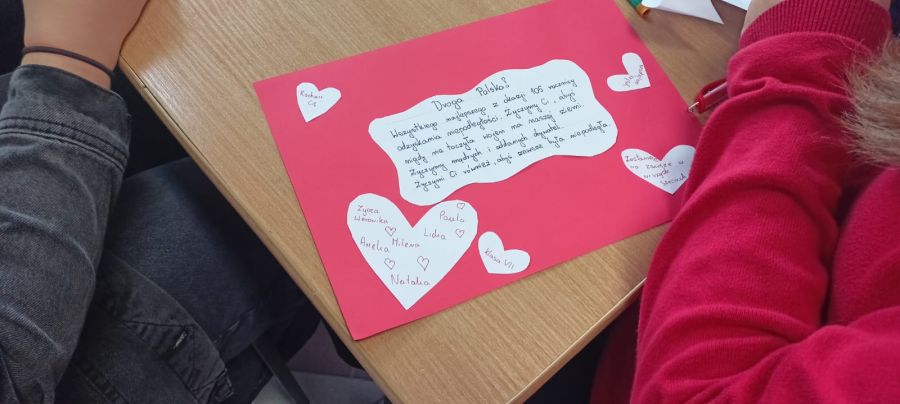 Kocham
Cię
Droga Polsko!
Wszystkiego najlepszego z okazji 105 rocznicy
odzyskania niepodległości. Życzymy Ci, abyś
nigdy nie toczyła wojen na naszej ziemi.
Życzymy mądrych i oddanych obywateli.
Życzymy Ci również, abyś zawsze była niepodległa.
Zostaniesz
na zawsze w
naszych
sercach
Życzą
Weronika
Paula
Lidia
Amelia Milena
Natalia
klasa VII